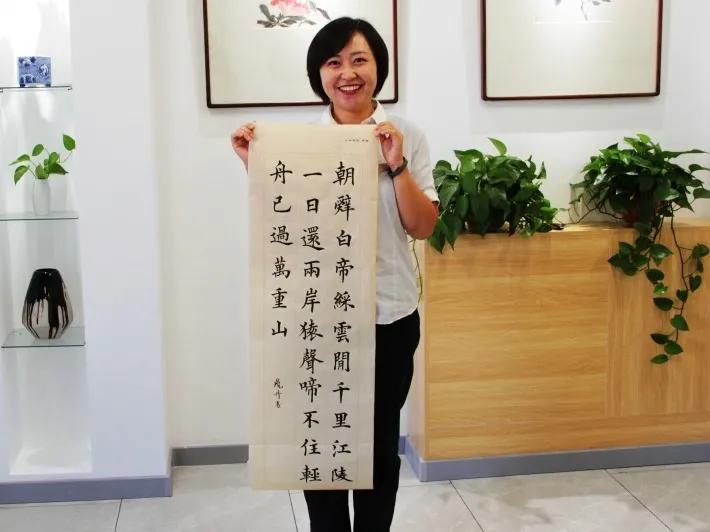 朝辤白帝綵雲閒千里江陵
一日還兩岸猿聲啼不住輕
舟已過萬重山